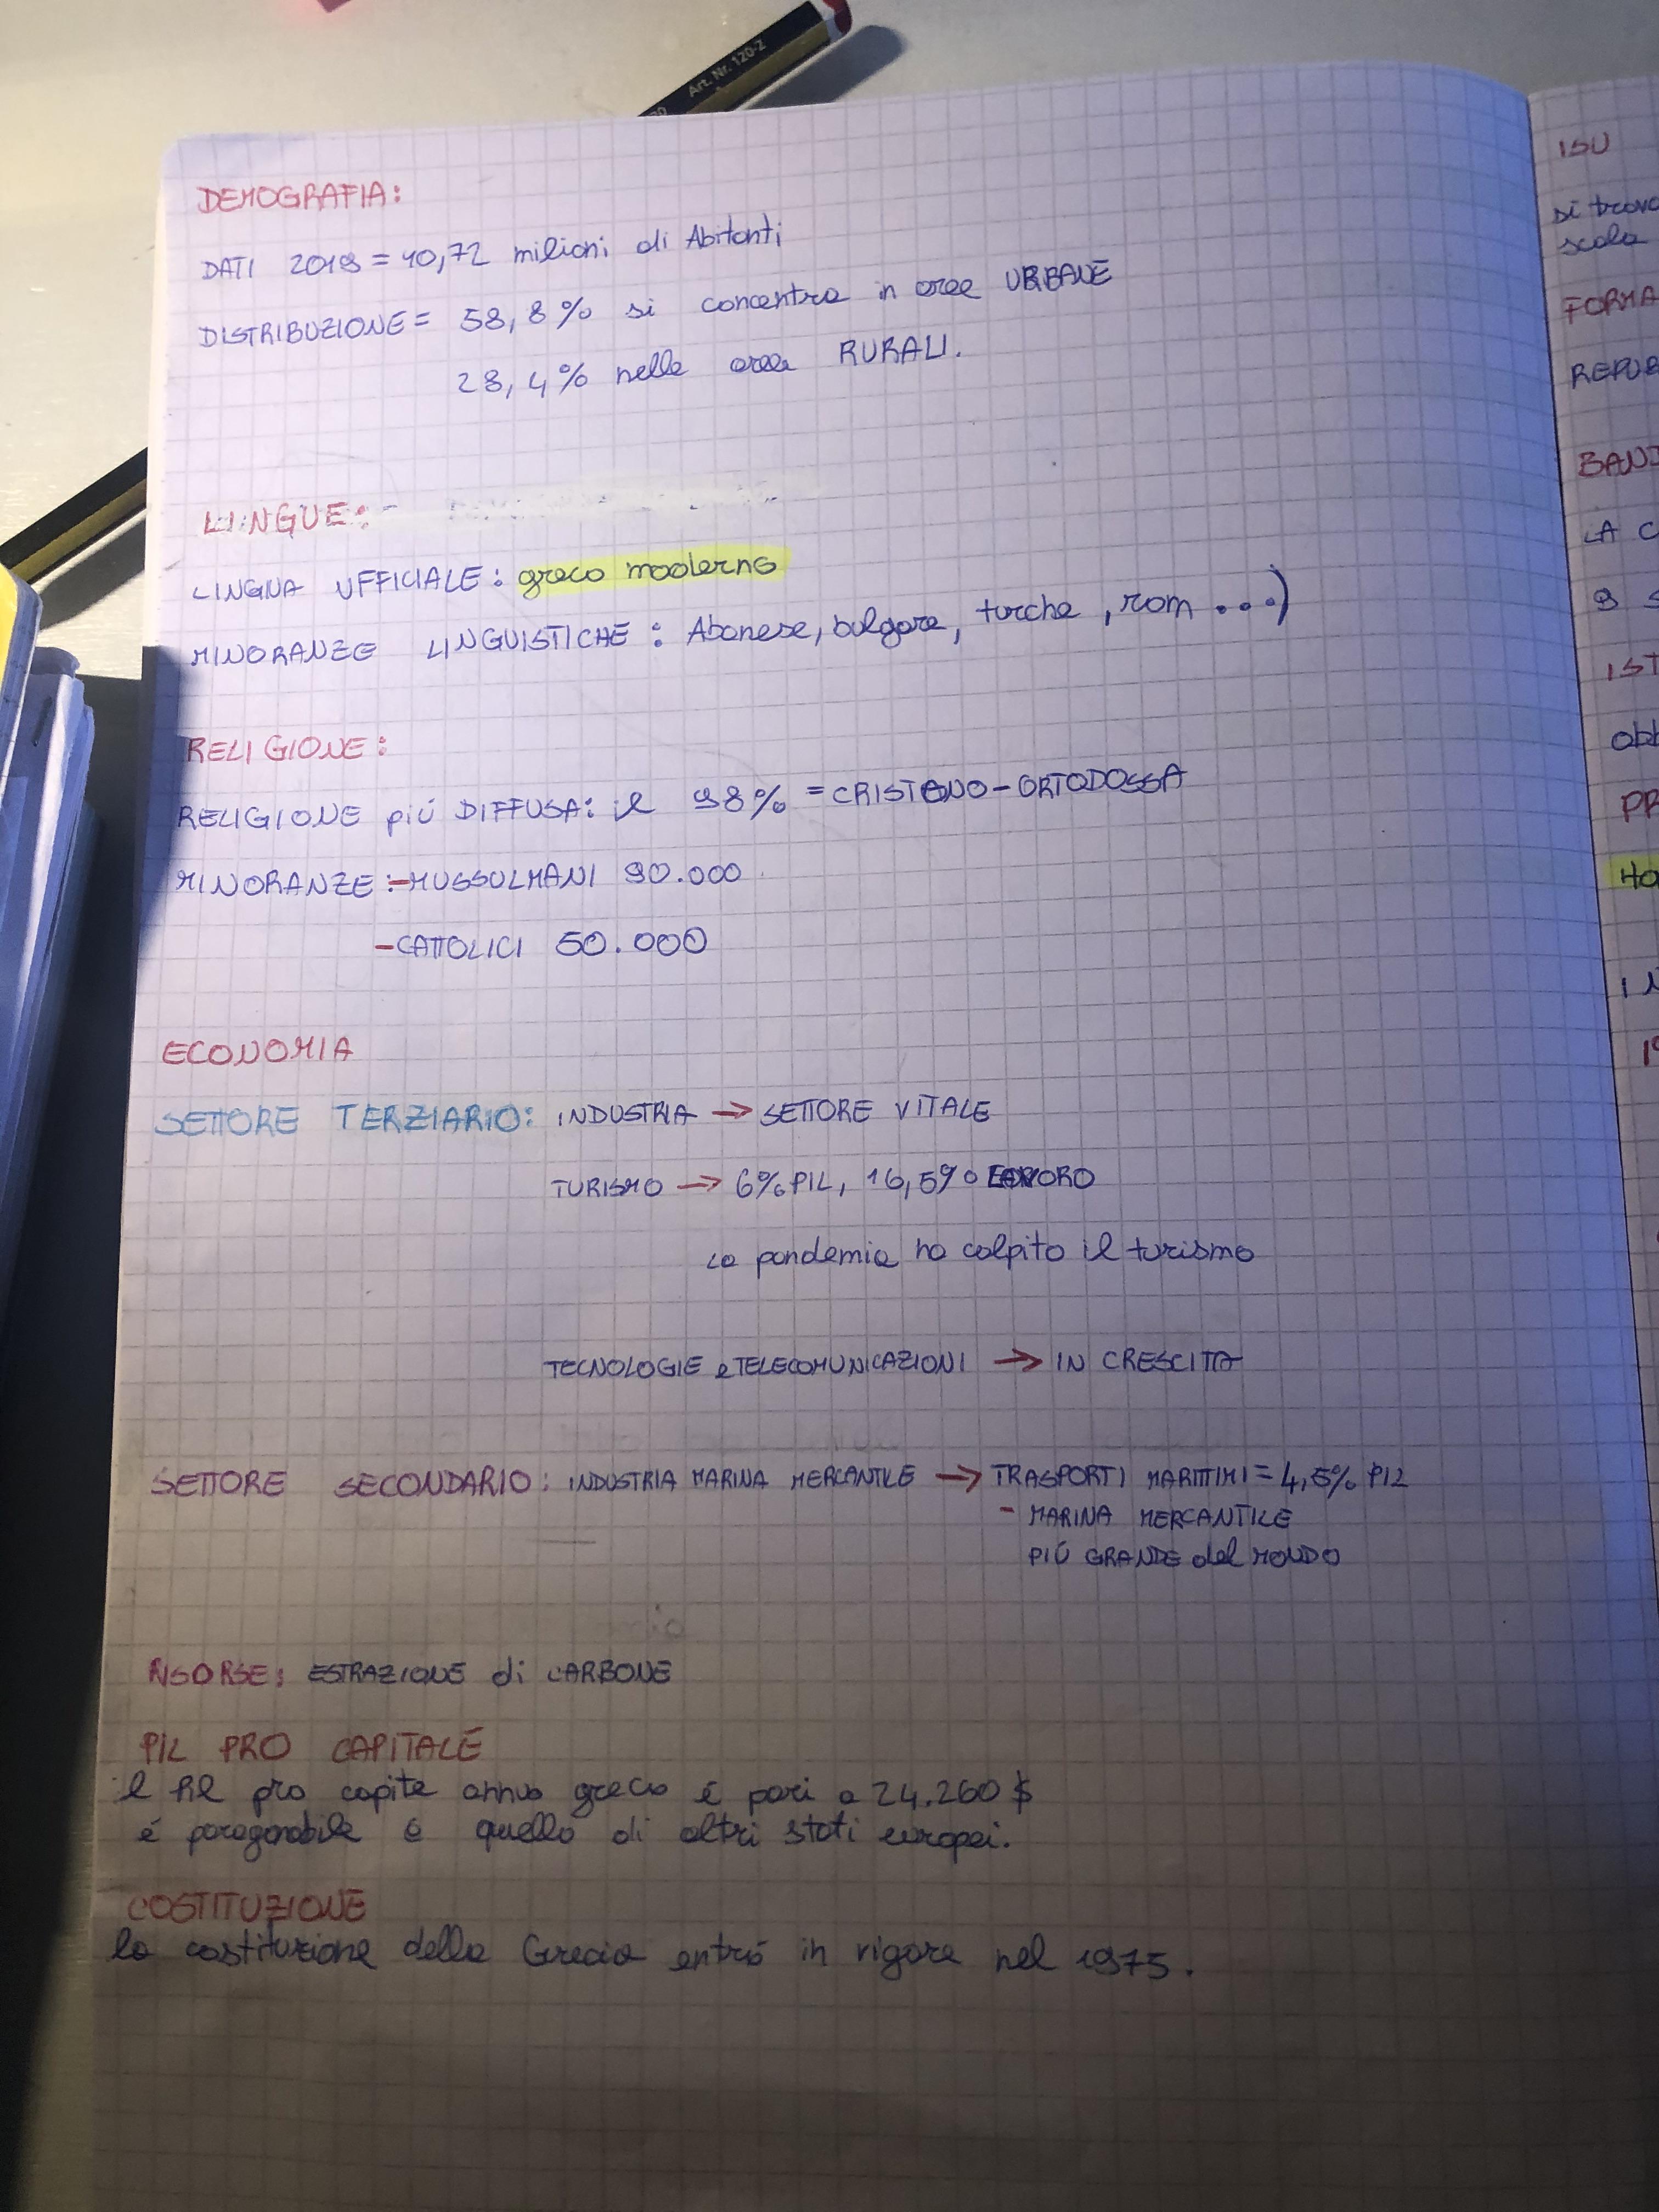 Art. Nr. 120-2
DEMOGRAFIA:
DATI 2019 = 10,72 milioni di Abitanti
DISTRIBUZIONE = 58,8% si concentra in aree URBANE
28,4% nelle aree RURALI.
LINGUE:
LINGUA UFFICIALE: greco moderno
MINORANZE LINGUISTICHE: Abanese, bulgara, turcha, rom ...)
RELIGIONE:
RELIGIONE più DIFFUSA: il 98% = CRISTANO-ORTODOSSA
MINORANZE: -MUSSULMANI 90.000
-CATTOLICI 50.000
ECONOMIA
SETTORE TERZIARIO: INDUSTRIA → SETTORE VITALE
TURISMO → 6% PIL, 16,5% LAVORO
La pandemia ha colpito il turismo
TECNOLOGIE e TELECOMUNICAZIONI → IN CRESCITA
SETTORE SECONDARIO: INDUSTRIA MARINA MERCANTILE → TRASPORTI MARITTIMI = 4,5% PIL
- MARINA MERCANTILE
PIÙ GRANDE del MONDO
RISORSE: ESTRAZIONE di CARBONE
PIL PRO CAPITALE
il Pil pro capite annuo greco é pari a 24.260 $
é paragonabile a quello di altri stati europei.
COSTITUZIONE
la costituzione della Grecia entró in vigore nel 1975.
ISU
si trova
scala
FORMA
REPUB
BAND
LA C
9 s
IST
obb
PR
Ha
IN